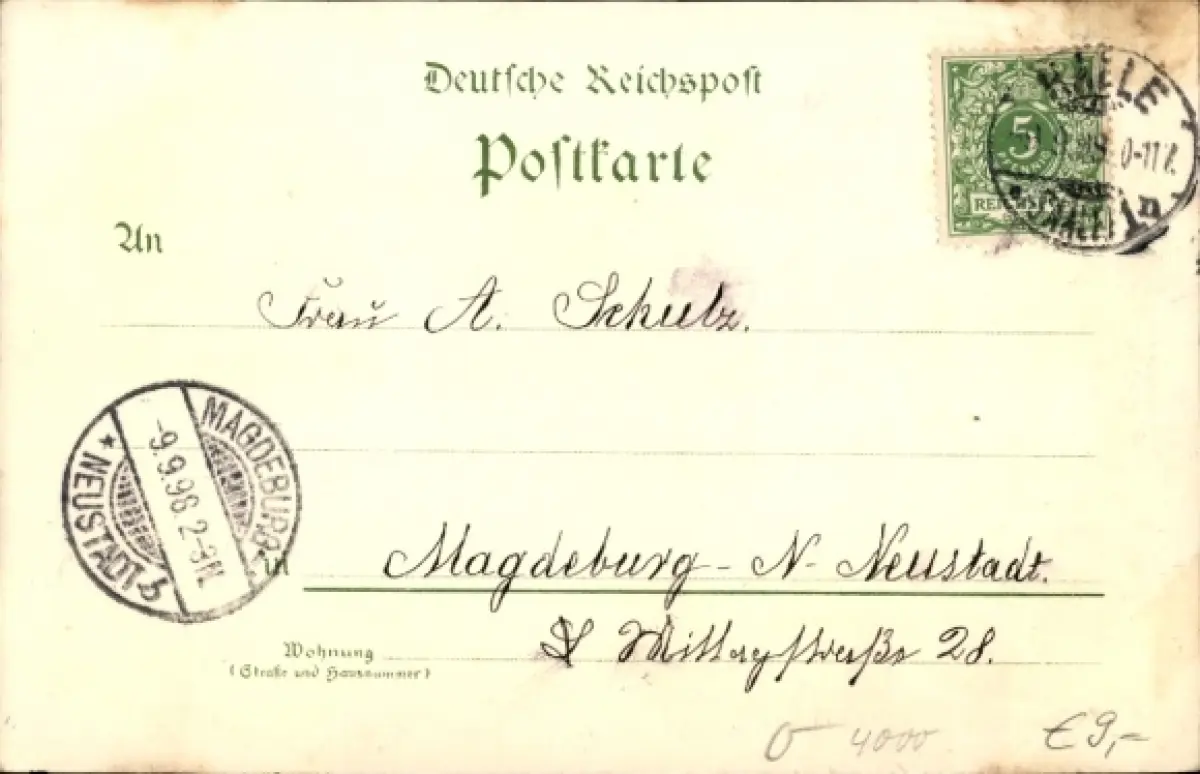 Deutsche Reichspost
Postkarte
An
5
HALLE
REICHSPOST
Frau A. Schulz.
MAGDEBURG
-9.9.98.2-3N.
* NEUSTADT b
in
Magdeburg - N- Neustadt.
Wohnung
(Straße und Hausnummer)
Mittagstraße 28.
4000
€ 9,-